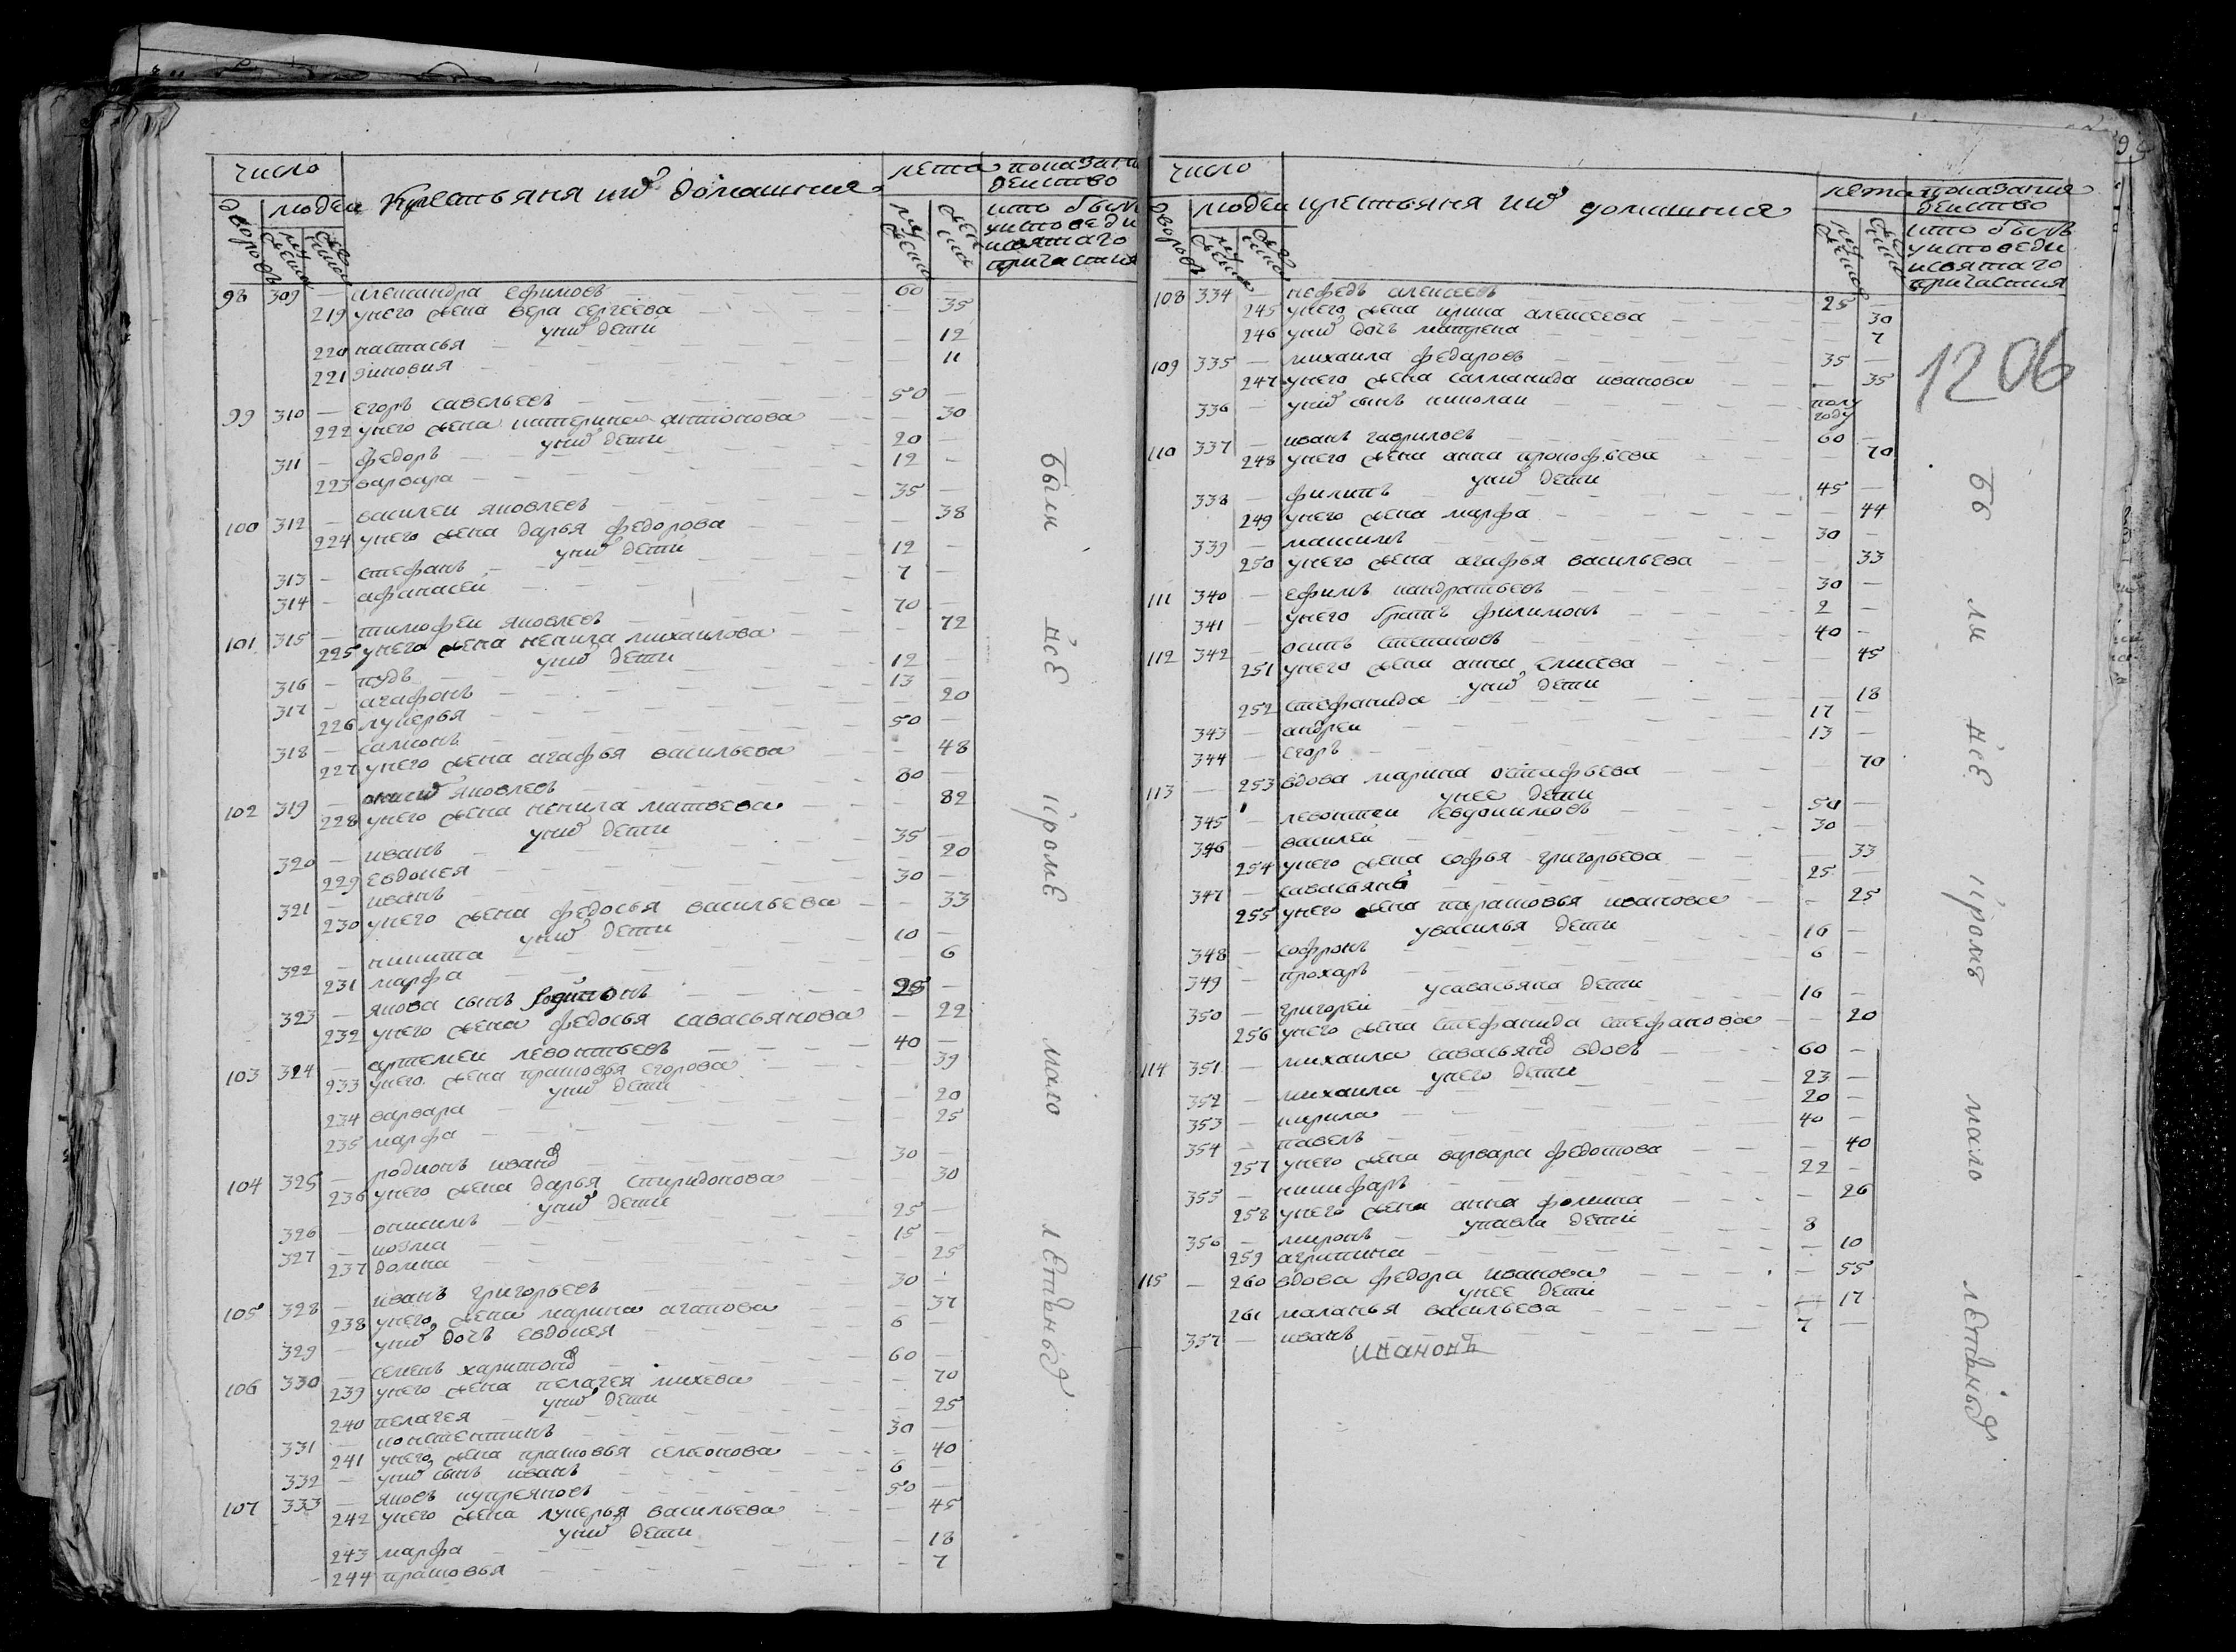 число
крестьяня ихъ домашния
лета
показани
действо
дворовъ
людей
мужеска
женска
мужеска
женска
кто былъ
уисповеди
исвятаго
причастия
98 309 — александра ефимовъ — 60 —
219 унего жена вера сергеева — 35
унихъ дети
220 настасья — 12
221 зиновия — 11
99 310 — егоръ савельевъ — 50 —
222 унего жена катерина антонова — 30
унихъ дети
311 — федоръ — 20 —
223 варвара — 12 —
100 312 — василеи яковлевъ — 35 —
224 унего жена дарья федорова — 38
унихъ дети
313 — стефанъ — 12 —
314 — афанасей — 7 —
101 315 — тимофеи яковлевъ — 70 —
225 унего жена ненила михаилова — 72
унихъ дети
316 — кудъ — 12 —
317 — агафонъ — 13 —
226 лукерья — 20
318 — самсонъ — 50 —
227 унего жена агафья васильева — 48
102 319 — яковлевъ — 80 —
228 унего жена ненила матвева — 82
унихъ дети
320 — иванъ — 35 —
229 евдокея — 20
321 — иванъ — 30 —
230 унего жена федосья васильева — 33
унихъ дети
322 — никита — 10 —
231 марфа — 6
323 — якова сынъ родионъ — 25 —
232 унего жена федосья савасьянова — 22
103 324 — артемеи левонтьевъ — 40 —
233 унего жена прасковья егорова — 39
унихъ дети
234 варвара — 20
235 марфа — 25
104 325 — родионъ иванов — 30 —
236 унего жена дарья спиридонова — 30
унихъ дети
326 — онисимъ — 25 —
327 — козма — 15 —
237 домна — 25
105 328 — иванъ григорьевъ — 30 —
238 унего жена марина агапова — 37
329 — унихъ дочь евдокея — 6 —
106 330 — семенъ харитонов — 60 —
239 унего жена пелагея михева — 70
унихъ дети
240 пелагея — 25
331 — констентинъ — 30 —
241 унего жена прасковья семионова — 40
332 — унихъ сынъ иванъ — 6 —
107 333 — яковъ купреяновъ — 50 —
242 унего жена лукерья васильева — 45
унихъ дети
243 марфа — 18
244 прасковья — 7
были все кроме мало летныхъ
число
крестьяня ихъ домашния
лета
показания
действо
дворовъ
людеи
мужеска
женска
мужеска
женска
кто былъ
уисповеди
исвятаго
причастия
108 334 — нефедъ алексеевъ — 25 —
245 унего жена ирина алексеева — 30
246 унихъ дочь матрена — 7
109 335 — михаила федаровъ — 35 —
247 унего жена саламанида иванова — 35
336 — унихъ сынъ николаи — полу году
110 337 — иванъ гавриловъ — 60 —
248 унего жена анна прокофьева — 70
унихъ дети
338 — филипъ — 45 —
249 унего жена марфа — 44
339 — максимъ — 30 —
250 унего жена агафья васильева — 33
111 340 — ефимъ кандратьевъ — 30 —
341 — унего братъ филимонъ — 2 —
112 342 — осипъ степановъ — 40 —
251 унего жена анна елисева — 45
унихъ дети
252 стефанида — 18
343 — андреи — 17 —
344 — егоръ — 13 —
113 — 253 вдова марина остафьева — 70
унее дети
345 — левонтеи евдокимовъ — 50 —
346 — василей — 30 —
254 унего жена софья григорьева — 33
347 — савасьянъ — 25 —
255 унего жена парасковья иванова — 25
увасилья дети
348 — софронъ — 16 —
349 — прохаръ — 6 —
усавасьяна дети
350 — григорей — 16 —
256 унего жена стефанида стефанова — 20
114 351 — михаила савасьянов вдовъ — 60 —
унего дети
352 — михаила — 23 —
353 — кирила — 20 —
354 — павелъ — 40 —
257 унего жена варвара федотова — 40
355 — никифаръ — 22 —
258 унего жена анна фомина — 26
упавла дети
356 — миронъ — 8 —
259 агрипина — 10
115 — 260 вдова федора иванова — 55
унее дети
261 маланья васильева — 17
357 — иванъ — 7 —
1206
бы ли все кроме мало летныхъ